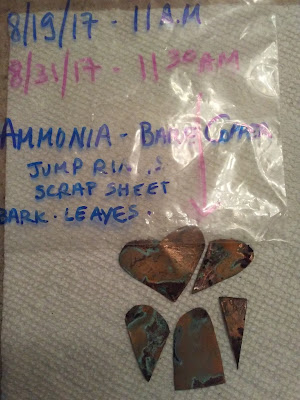 8/19/17 - 11 A.M
8/31/17 - 11 30 A.M
AMMONIA - BARE COPPER
JUMP RINGS
SCRAP SHEET
BARK. LEAVES.